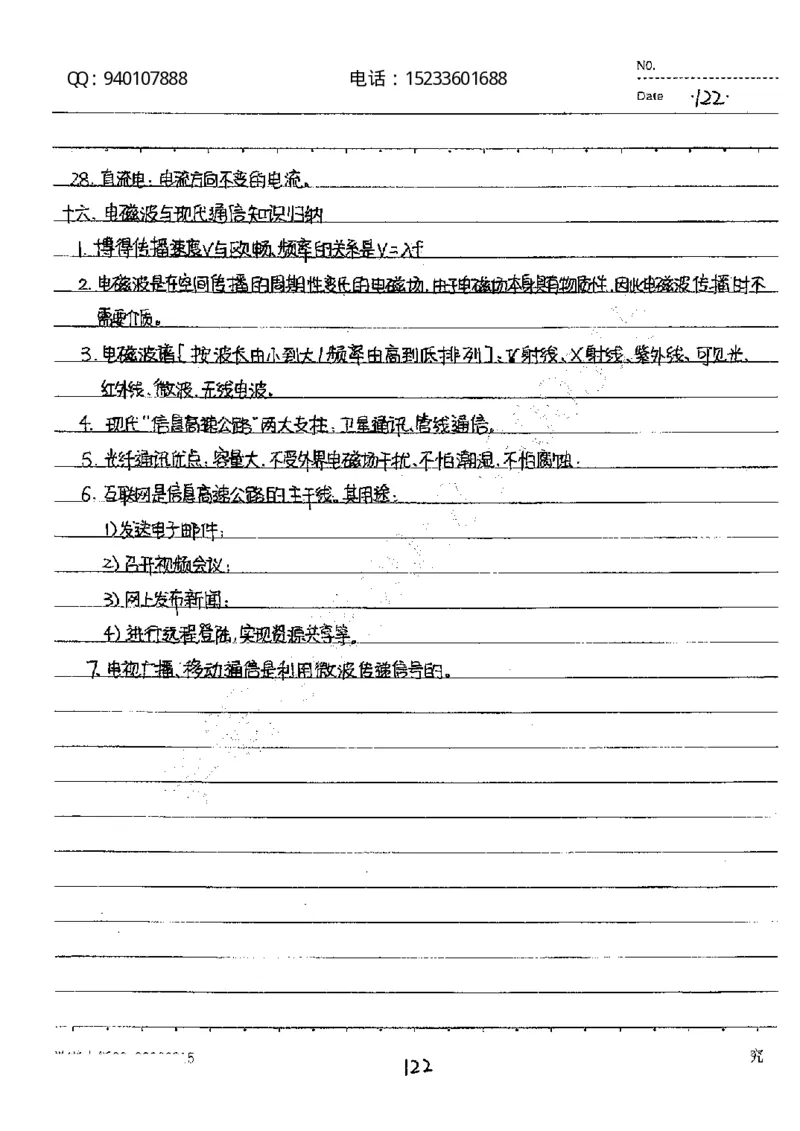 QQ：940107888 电话：15233601688
NO.
Date ·122·
28. 直流电：电流方向不变的电流。
十六、电磁波与现代通信知识归纳
1. 博得传播速度V与 频率的关系是V=λf
2. 电磁波是在空间传播的周期性变化的电磁场，由于电磁场本身具有物质性，因此电磁波传播时不
需要介质。
3. 电磁波谱[按波长由小到大/频率由高到低排列]、γ射线、X射线、紫外线、可见光、
红外线、微波、无线电波。
4. 现代“信息高速公路”两大支柱：卫星通讯、管线通信。
5. 光纤通讯优点：容量大，不受外界电磁场干扰、不怕潮湿，不怕腐蚀.
6. 互联网是信息高速公路的主干线。其用途：
1) 发送电子邮件；
2) 召开视频会议；
3) 网上发布新闻；
4) 进行远程登陆，实现资源共享等。
7. 电视广播、移动通信是利用微波传递信号的。
5
122
究